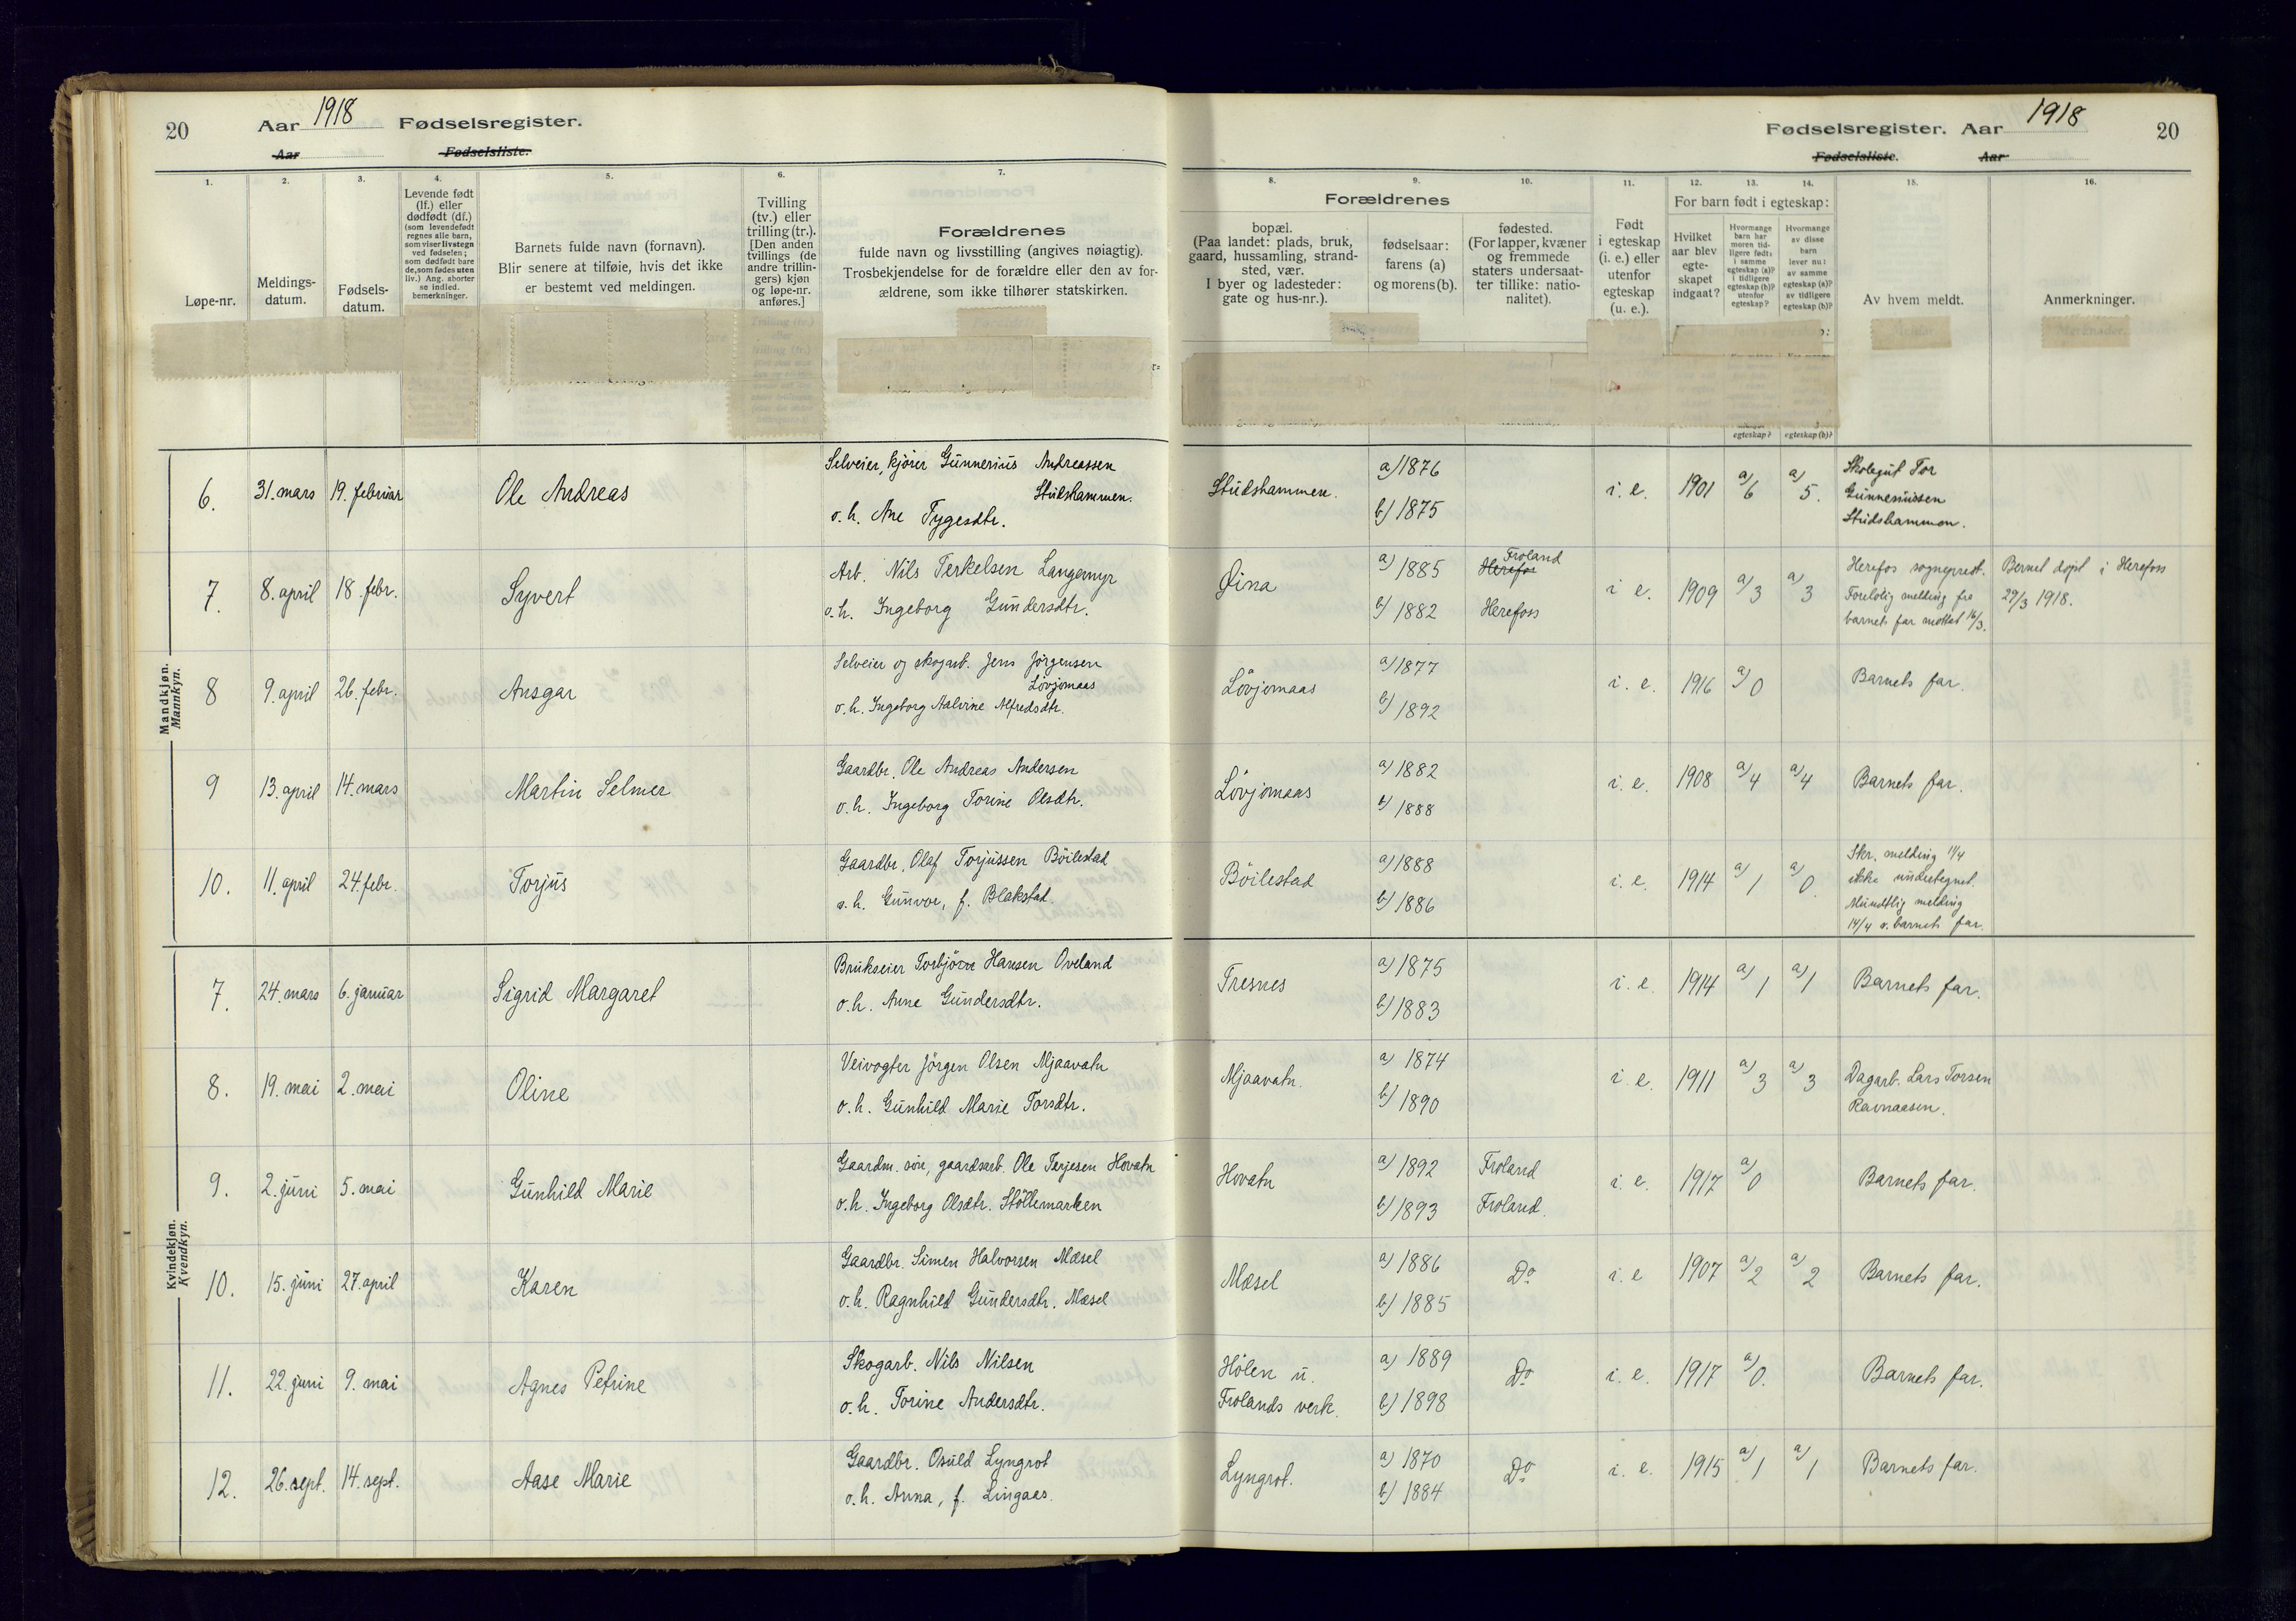 20
Aar 1918 Fødselsregister.
Aar Fødselsliste.
Fødselsregister. Aar 1918
20
Fødselsliste. Aar
1.
2.
3.
4.
5.
6.
7.
8.
9.
10.
11.
12.
13.
14.
15.
16.
Løpe-nr.
Meldings-
datum.
Fødsels-
datum.
Levende født
(lf.) eller
dødfødt (df.)
(som levendefødt
regnes alle barn,
som viser livstegn
ved fødselen;
som dødfødt bare
de, som fødes uten
liv.) Ang. aborter
se indled.
bemerkninger.
Barnets fulde navn (fornavn).
Blir senere at tilføie, hvis det ikke
er bestemt ved meldingen.
Tvilling
(tv.) eller
trilling (tr.).
[Den anden
tvillings (de
andre trillin-
gers) kjøn
og løpe-nr.
anføres.]
Forældrenes
fulde navn og livsstilling (angives nøiagtig).
Trosbekjendelse for de forældre eller den av for-
ældrene, som ikke tilhører statskirken.
Forældrenes
bopæl.
(Paa landet: plads, bruk,
gaard, hussamling, strand-
sted, vær.
I byer og ladesteder:
gate og hus-nr.).
fødselsaar:
farens (a)
og morens (b).
fødested.
(For lapper, kvæner
og fremmede
staters undersaat-
ter tillike: natio-
nalitet).
Født
i egteskap
(i. e.) eller
utenfor
egteskap
(u. e.).
For barn født i egteskap:
Hvilket
aar blev
egte-
skapet
indgaat?
Hvormange
barn har
moren tid-
ligere født:
i samme
egteskap (a)?
i tidligere
egteskap (b)?
utenfor
egteskap?
Hvormange
av disse
barn
lever nu:
av samme
egteskap (a)?
av tidligere
egteskap (b)?
Av hvem meldt.
Anmerkninger.
egteskap?
egteskap (b)?
Mandkjøn.
Mannkyn.
6. 31. mars 19. februar Ole Andreas Selveier, kjörer Gunnerius Andreassen
Studshammen.
o. h. Ane Tygesdtr.
Studshammen. a) 1876 b) 1875 i. e. 1901 a) 6 a) 5. Skolegut Tor
Gunneriussen
Studshammen.
7. 8. april 18. febr. Syvert Arb. Nils Terkelsen Langemyr
o. h. Ingeborg Gundersdtr.
Øina a) 1885 Froland Herefos b) 1882 Herefoss i e. 1909 a) 3 a) 3 Herefos sogneprest.
Foreløbig melding fra
barnets far mottat 16/3.
Barnet døpt i Herefoss
29/3 1918.
8 9. april 26. febr. Ansgar Selveier og skogarb. Jens Jörgensen
Lövjomaas
o. h. Ingeborg Aalvine Alfredsdtr.
Lövjomaas a) 1877 b) 1892 i. e. 1916 a) 0 Barnets far.
9 13. april 14. mars Martin Selmer Gaardbr. Ole Andreas Andersen
o. h. Ingeborg Torine Olsdtr.
Lövjomaas a) 1882 b) 1888 i. e. 1908 a) 4 a) 4 Barnets far.
10. 11. april 24. febr. Torjus Gaardbr. Olaf Torjussen Böilestad
o. h. Gunvor, f. Blakstad.
Böilestad a) 1888 b) 1886 i. e. 1914 a) 1 a) 0. Skr. melding 11/4
ikke undertegnet.
Mundtlig melding
14/4 v. barnets far.
Kvindekjøn.
Kvendkyn.
7. 24. mars 6. januar Sigrid Margaret Brukseier Torbjörn Hansen Oveland
o. h. Anne Gundersdtr.
Tresnes a) 1875 b) 1883 i. e. 1914 a) 1 a) 1 Barnets far.
8. 19. mai 2. mai Oline Veivogter Jörgen Olsen Mjaavatn
o. h. Gunhild Marie Torsdtr.
Mjaavatn. a) 1874 b) 1890 i. e. 1911 a) 3 a) 3 Dagarb. Lars Torsen
Ravnaasen.
9. 2. juni 5. mai Gunhild Marie Gaardm. sön, gaardsarb. Ole Terjesen Hovatn
o. h. Ingeborg Olsdtr. Stöllemarken
Hovatn a) 1892 Froland b) 1893 Froland. i. e. 1917 a) 0 Barnets far.
10. 15. juni 27. april Karen Gaardbr. Simen Halvorsen Mæsel
o. h. Ragnhild Gundersdtr. Mæsel
Mæsel a) 1886 b) 1885 Do i. e 1907 a) 2 a) 2 Barnets far.
11. 22. juni 9. mai Agnes Petrine Skogarb. Nils Nilsen
o. h. Torine Andersdtr.
Hölen u.
Frolands verk. a) 1889 b) 1898 Do i. e. 1917 a) 0. Barnets far.
12. 26. sept. 14. sept. Aase Marie Gaardbr. Osuld Lyngrot
o. h. Anna, f. Lingaas.
Lyngrot. a) 1870 b) 1884 Do i. e. 1915 a) 1 a) 1 Barnets far.